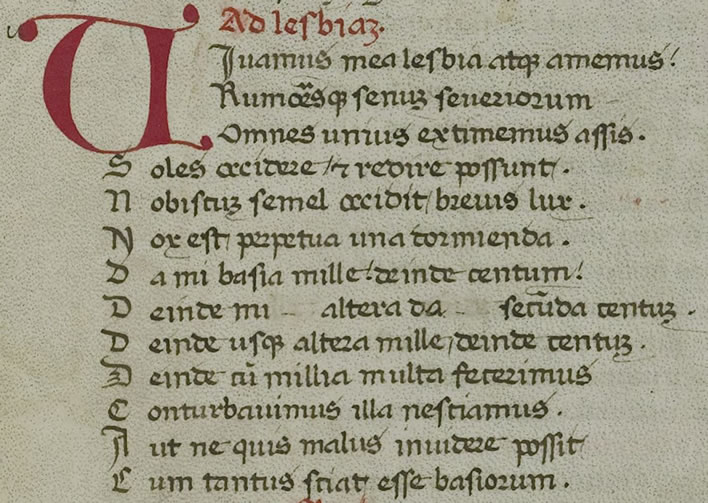 Ad lesbiaꝫ.
VIuamus mea lesbia atqꝫ amemus!
Rumoresqꝫ senuꝫ seueriorum
Omnes unius extimemus assis.
Soles occidere ⁊ redire possunt.
Nobiscuꝫ semel occidit, breuis lux.
Nox est, perpetua una dormienda.
Da mi basia mille! deinde centum!
Deinde mi altera da secūda centuꝫ.
Deinde usqꝫ altera mille, deinde centuꝫ.
Deinde cū millia multa fecerimus
Conturbauimus illa nesciamus.
Aut ne quis malus inuidere possit
Cum tantus sciat esse basiorum.